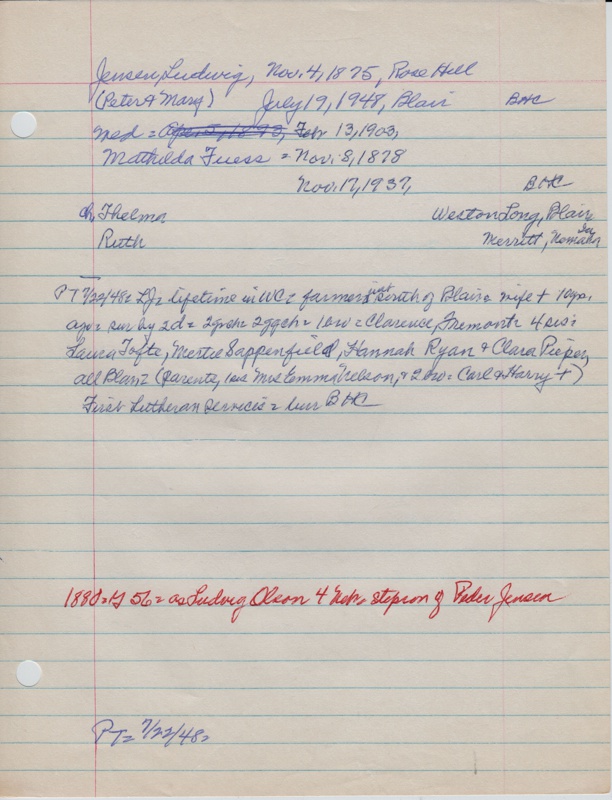 Jensen, Ludwig, Nov. 4, 1875, Rose Hill
(Peter & Mary) July 19, 1948, Blair BHC
med = Apr. 5, 1893, Feb 13, 1903,
Mathilda Fuess = Nov. 8, 1878
Nov. 17, 1937, BHC
ch, Thelma Weston Long, Blair
Ruth Merritt, Nemaha
PT 7/22/48 = LJ = lifetime in WC = farmer just south of Blair = wife + 10 yrs
ago = sur by 2d = 2gch = 2ggch = 1bro = Clarence, Fremont = 4 sis =
Laura Tofte, Mertie Sappenfield, Hannah Ryan & Clara Pieper,
all Blair (parents, 1sis Mrs Emma Nelson, & 2 bro = Carl & Harry +)
First Lutheran services = bur BHC
1880 = 56 = as Ludwig Olson 4 Neb = stepson of Peder Jensen
PT = 7/22/48 =